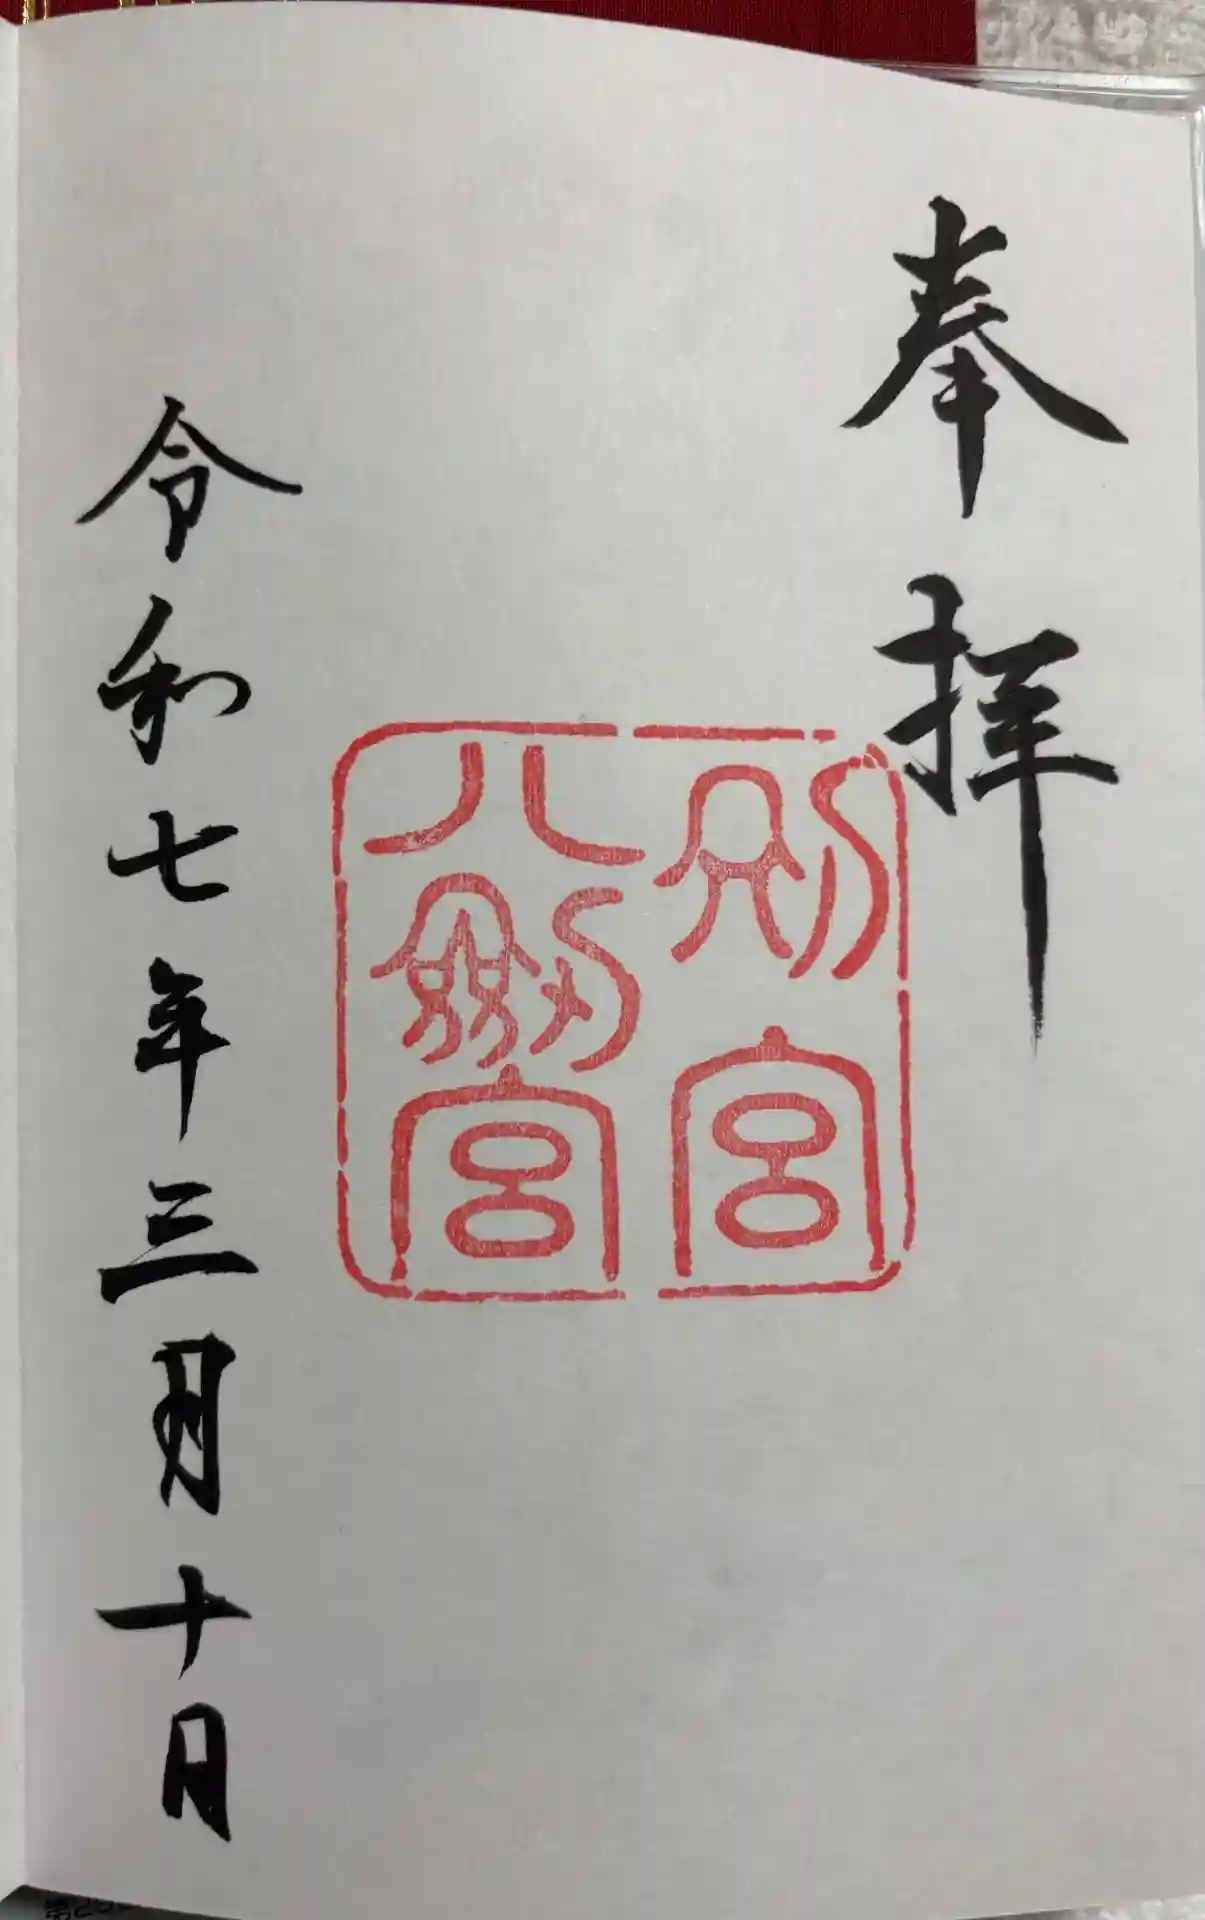 奉拝
別宮
八剱宮
令和七年三月十日